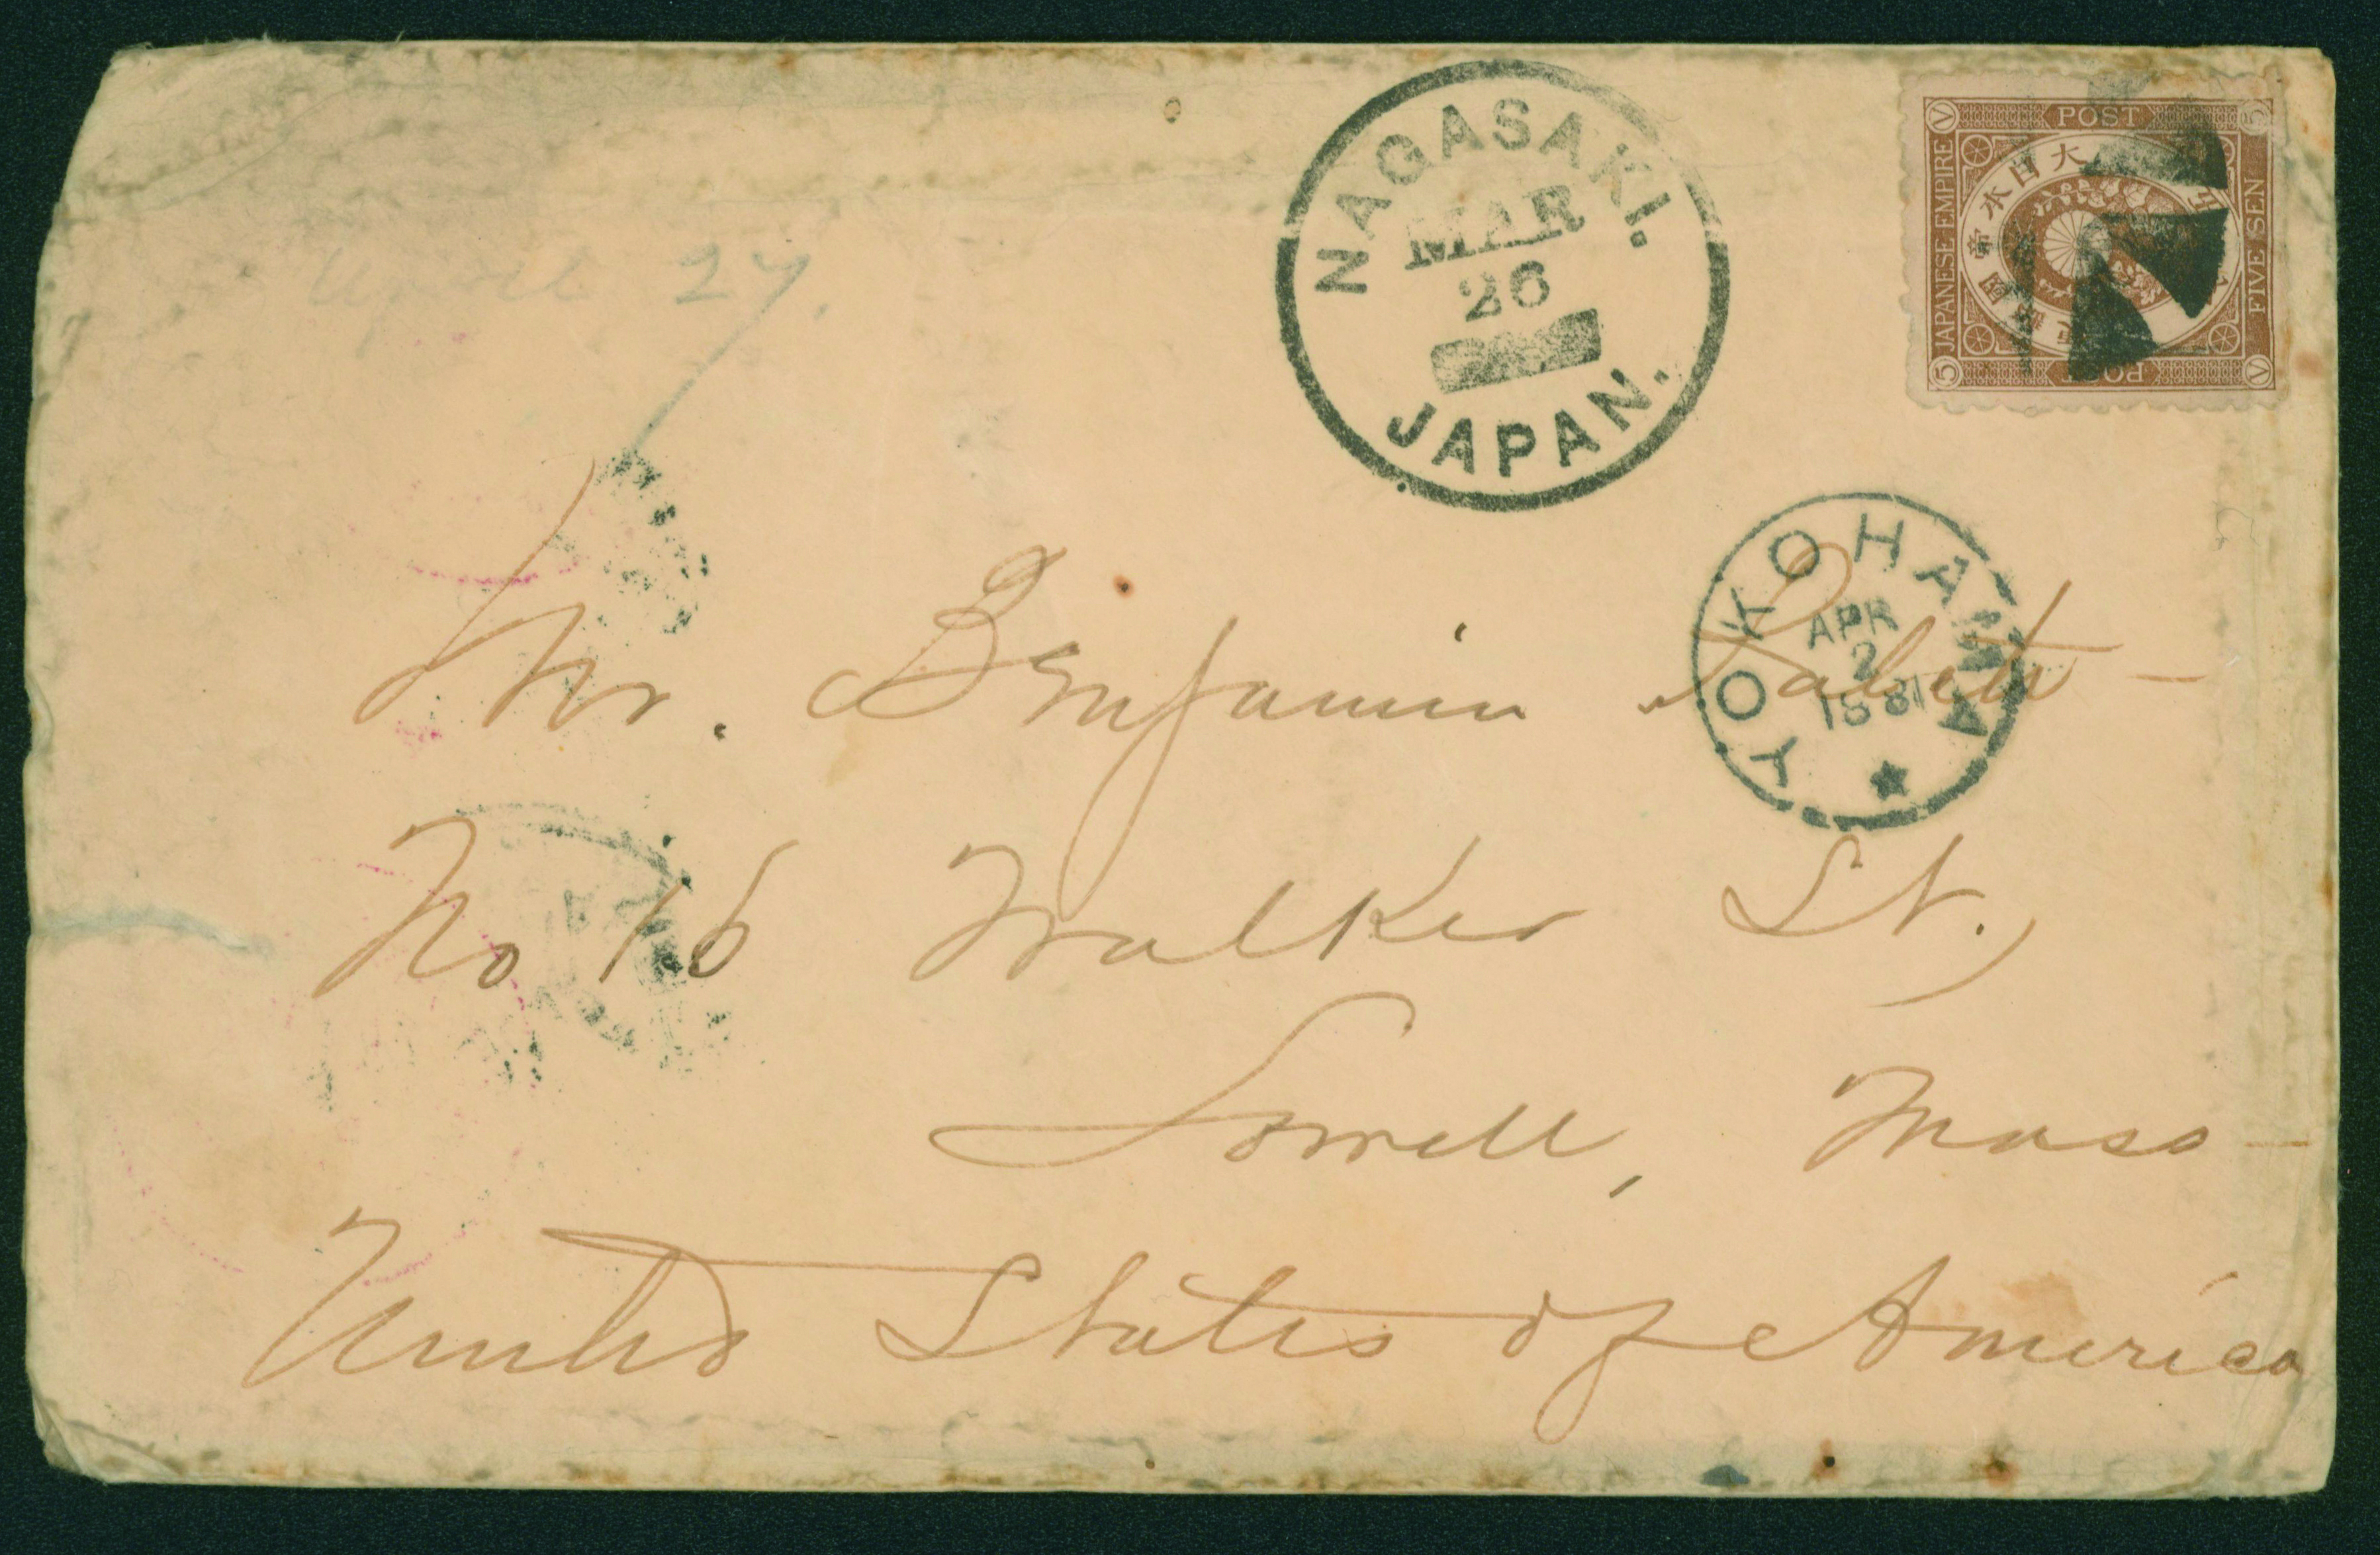 POST
JAPANESE EMPIRE
大日本帝國
FIVE SEN
POST
5
NAGASAKI.
MAR
26
JAPAN.
April 27.
YOKOHAMA
APR
2
1881
Mr. Benjamin
No 16 Walker St.,
Lowell, Mass
United States of America